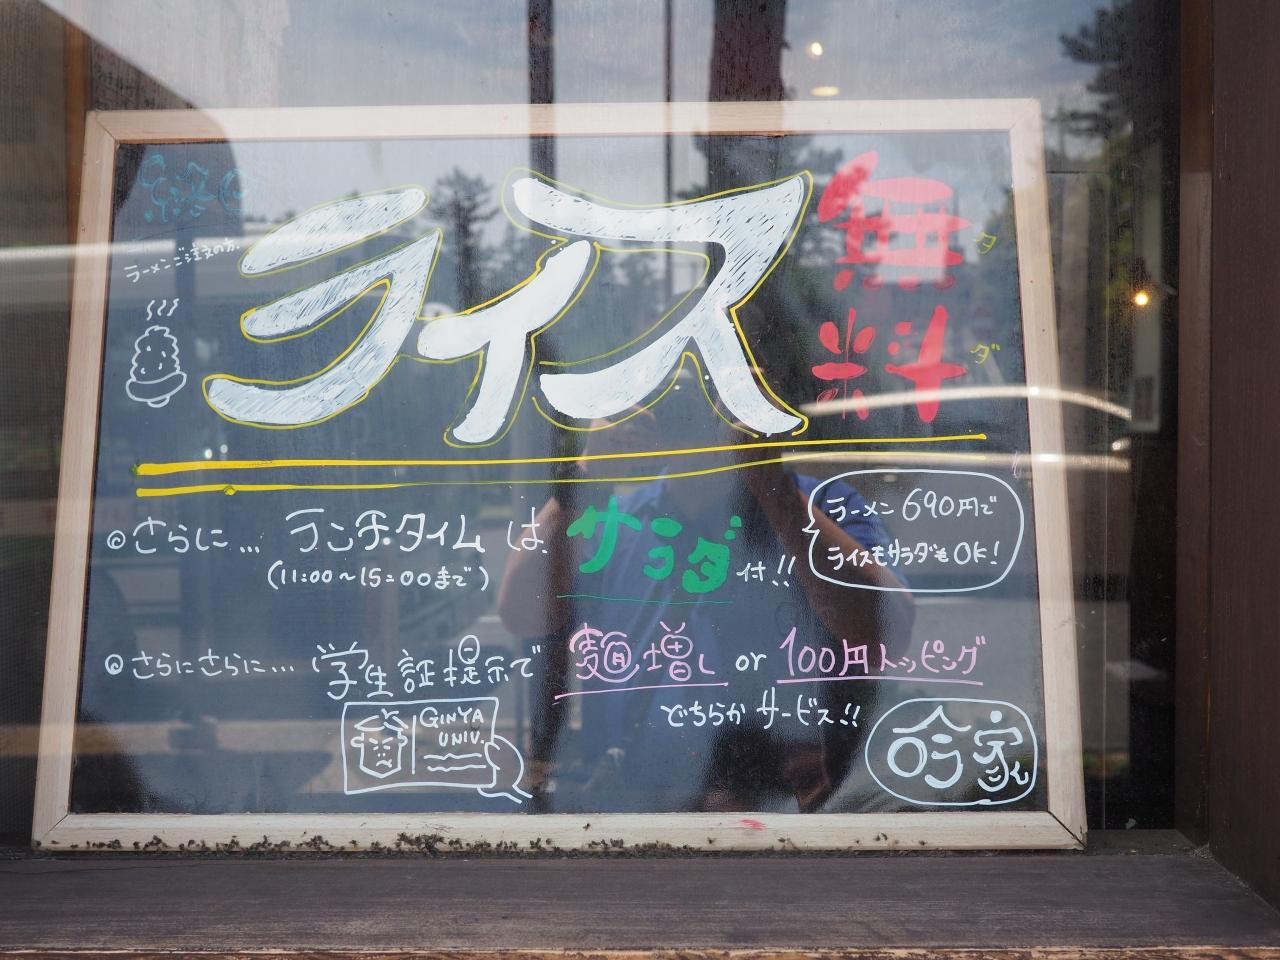 ラーメンご注文の方
ライス
無料
タダ
◎さらに… ランチタイムは サラダ付!!
(11:00~15:00まで)
ラーメン690円で
ライスもサラダもOK!
◎さらにさらに… 学生証提示で 麺増し or 100円トッピング
どちらかサービス!!
GINYA
UNIV.
吟家